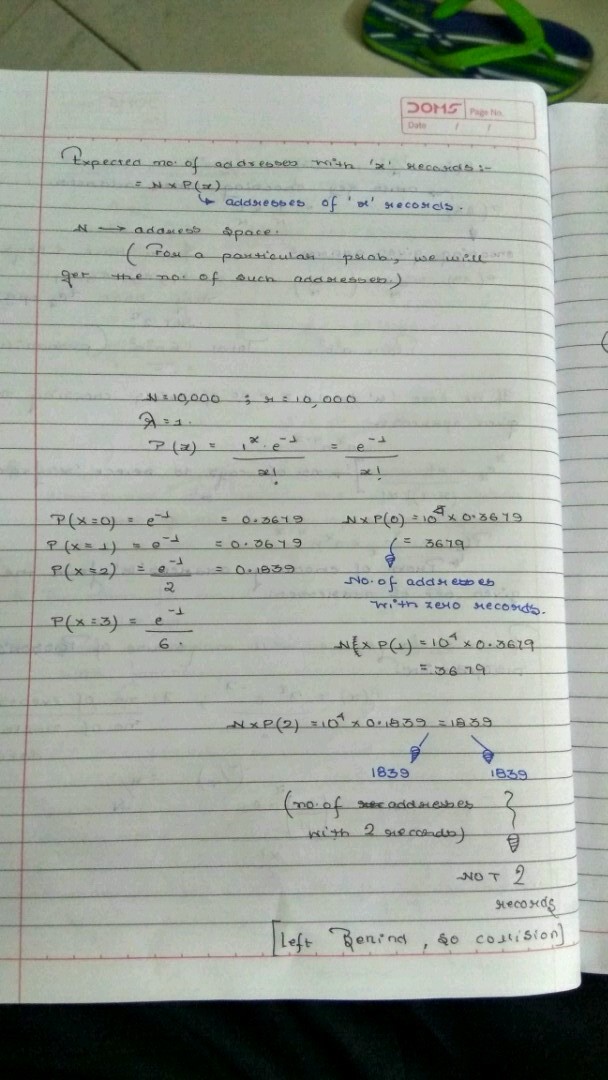 DOMS Page No.
Date / /
Expected no. of addresses with 'x' records:-
= N x P(x)
↳ addresses of 'x' records.
N → address space.
( For a particular prob, we will
get the no. of such addresses.)
N = 10,000 ; r = 10,000
λ = 1.
P(x) = 1^x . e^-1 / x! = e^-1 / x!
P(x=0) = e^-1 = 0.3679 N x P(0) = 10^4 x 0.3679
P(x=1) = e^-1 = 0.3679 = 3679
P(x=2) = e^-1 / 2 = 0.1839 No. of addresses
with zero records.
P(x=3) = e^-1 / 6. N x P(1) = 10^4 x 0.3679
= 3679
N x P(2) = 10^4 x 0.1839 = 1839
1839 1839
(no. of addresses
with 2 records)
NOT 2
records
[Left Behind, so collision]